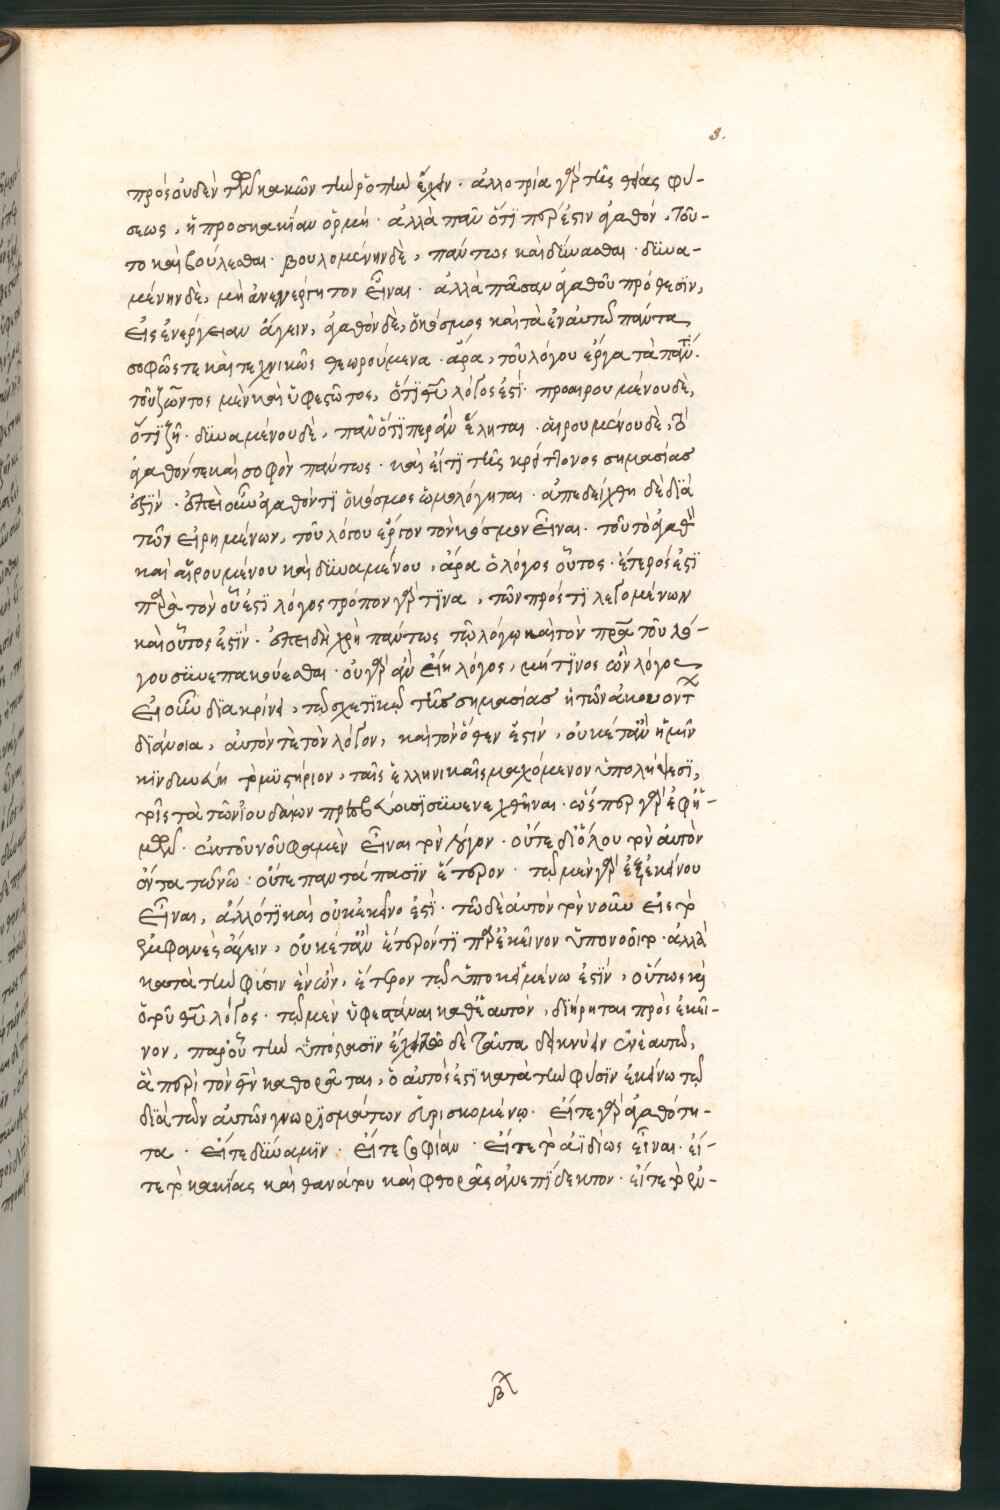 3.
πρὸς οὐδὲν τῶν κακῶν τὴν ῥοπὴν ἔχειν · ἀλλοτρία γὰρ τῆς θείας φύ-
σεως, ἡ πρὸς κακίαν ὁρμή · ἀλλὰ πᾶν ὅτι περ ἐστὶν ἀγαθόν, τοῦ-
το καὶ βούλεσθαι · βουλομένην δὲ, πάντως καὶ δύνασθαι · δυνα-
μένην δὲ, μὴ ἀνενέργητον εἶναι · ἀλλὰ πᾶσαν ἀγαθοῦ πρόθεσιν,
εἰς ἐνέργειαν ἄγειν, ἀγαθὸν δὲ, ὁ κόσμος καὶ τὰ ἐν αὐτῷ πάντα
σοφῶς τε καὶ τεχνικῶς θεωρούμενα · ἄρα, τοῦ λόγου ἔργα τὰ πάντα ·
τοῦ ζῶντος μὲν καὶ ὑφεστῶτος, ὅτι θεοῦ λόγος ἐστί · προαιρουμένου δὲ,
ὅτι ζῆ · δυναμένου δὲ, πᾶν ὅτι περ ἂν ἕληται · αἱρουμένου δὲ, τὸ
ἀγαθόν τε καὶ σοφὸν πάντως · καὶ εἴ τι τῆς κρείττονος σημασίας
ἐστίν · ἐπεὶ οὖν ἀγαθόν τι ὁ κόσμος ὡμολόγηται · ἀπεδείχθη δὲ διὰ
τῶν εἰρημένων, τοῦ λόγου ἔργον τὸν κόσμον εἶναι · τοῦ τὸ ἀγαθὸν
καὶ αἱρουμένου καὶ δυναμένου, ἄρα ὁ λόγος οὗτος · ἕτερός ἐστι
παρὰ τὸν οὗ ἐστι λόγος τρόπον γὰρ τινα, τῶν πρός τι λεγομένων
καὶ οὗτος ἐστίν · ἐπειδὴ χρὴ πάντως τῷ λόγῳ καὶ τὸν πατέρα τοῦ λό-
γου συνεπακούεσθαι · οὐ γὰρ ἂν εἴη λόγος, μή τινος ὢν λόγος
εἰ οὖν διακρίνει, τῷ σχετικῷ τῆς σημασίας ἡ τῶν ἀκουόντων
διάνοια, αὐτόν τε τὸν λόγον, καὶ τὸν ὅθεν ἐστίν, οὐκέτ' ἂν ἡμῖν
κινδυνεύη τὸ μυστήριον, ταῖς ἑλληνικαῖς μαχόμενον ὑπολήψεσι,
τοῖς τὰ τῶν ἰουδαίων πρεσβεύουσι συνενεχθῆναι · ὥσπερ γὰρ ἐφ' ἡ-
μῶν · ἐκ τοῦ νοῦ φαμὲν εἶναι τὸν λόγον · οὔτε δι' ὅλου τὸν αὐτὸν
ὄντα τῷ νῷ · οὔτε παντάπασιν ἕτερον · τῷ μὲν γὰρ ἐξ ἐκείνου
εἶναι, ἄλλό τι καὶ οὐκ ἐκεῖνο ἐστί · τῷ δὲ αὐτὸν τὸν νοῦν εἰς τὸ
ἐμφανὲς ἄγειν, οὐκέτ' ἂν ἕτερόν τι παρ' ἐκεῖνον ὑπονοοῖτο · ἀλλὰ
κατὰ τὴν φύσιν ἓν ὢν, ἕτερον τῷ ὑποκειμένῳ ἐστίν, οὕτως καὶ
ὁ τοῦ θεοῦ λόγος · τῷ μὲν ὑφεστάναι καθ' ἑαυτὸν, διήρηται πρὸς ἐκεῖ-
νον, παρ' οὗ τὴν ὑπόστασιν ἔχει τῷ δὲ ταῦτα δεικνύειν ἐν ἑαυτῷ,
ἃ περὶ τὸν θεὸν καθορᾶται, ὁ αὐτός ἐστι κατὰ τὴν φύσιν ἐκείνῳ τῷ
διὰ τῶν αὐτῶν γνωρισμάτων εὑρισκομένῳ · εἴτε γὰρ ἀγαθότη-
τα · εἴτε δύναμιν · εἴτε σοφίαν · εἴτε τὸ ἀϊδίως εἶναι · εἴ-
τε τὸ κακίας καὶ θανάτου καὶ φθορᾶς ἀνεπίδεκτον · εἴτε τὸ ἐν-
β